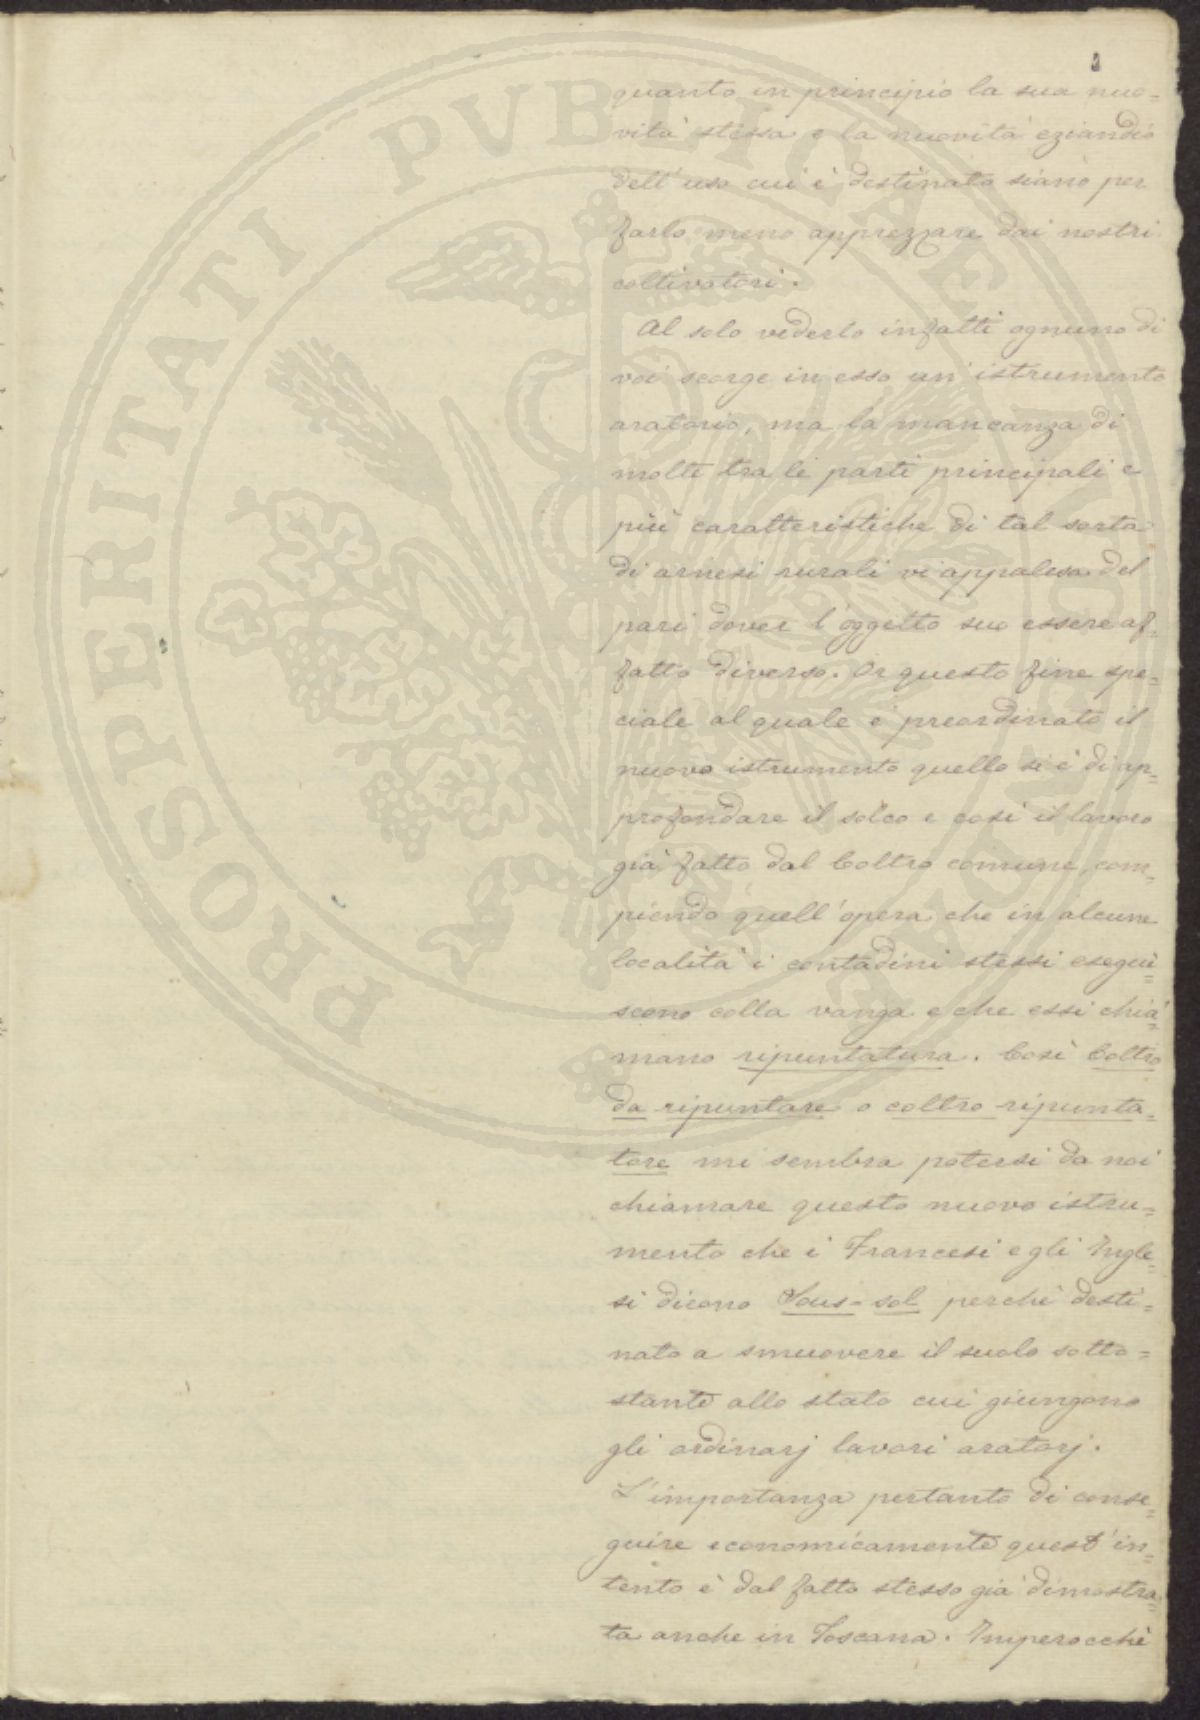 quanto in principio la sua nuo=
vità stessa e la nuovità eziandio
dell'uso cui è destinato siano per
farlo meno apprezzare dai nostri
coltivatori.
Al solo vederlo infatti ognuno di
voi scorge in esso un'istrumento
aratorio, ma la mancanza di
molte tra le parti principali e
più caratteristiche di tal sorta
di arnesi rurali vi appalesa del
pari dover l'oggetto suo essere af=
fatto diverso. Or questo fine spe=
ciale al quale è preordinato il
nuovo istrumento quello si è di ap=
profondare il solco e così il lavoro
già fatto dal Coltro comune, com=
piendo quell'opera che in alcune
località i contadini stessi esegui=
scono colla vanga e che essi chia=
mano ripuntatura. Così Coltro
da ripuntare o coltro ripunta=
tore mi sembra potersi da noi
chiamare questo nuovo istru=
mento che i Francesi e gli Ingle=
si dicono Sous-sol perchè desti=
nato a smuovere il suolo sotto=
stante allo stato cui giungono
gli ordinarj lavori aratorj.
L'importanza pertanto di conse=
guire economicamente quest'in=
tento è dal fatto stesso già dimostra=
ta anche in Toscana. Imperocchè
PROSPERITATI PVBLICAE AVGENDAE